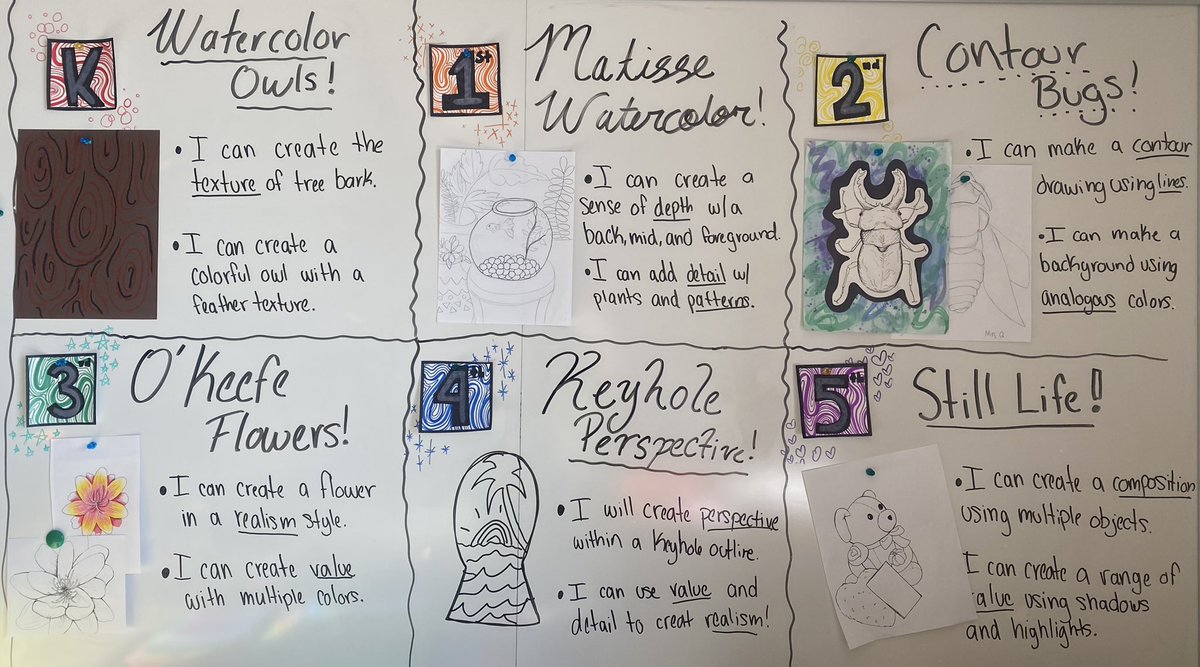 K
Watercolor
Owls!
• I can create the
texture of tree bark.
• I can create a
colorful owl with a
feather texture.
1st
Matisse
Watercolor!
• I can create a
sense of depth w/a
back, mid, and foreground.
• I can add detail w/
plants and patterns.
2nd
Contour
Bugs!
• I can make a contour
drawing using lines.
• I can make a
background using
analogous colors.
Mrs. Q
3rd
O'Keefe
Flowers!
• I can create a flower
in a realism style.
• I can create value
with multiple colors.
4th
Keyhole
Perspective!
• I will create perspective
within a Keyhole outline.
• I can use value and
detail to creat realism!
5th
Still Life!
• I can create a composition
using multiple objects.
I can create a range of
alue using shadows
and highlights.